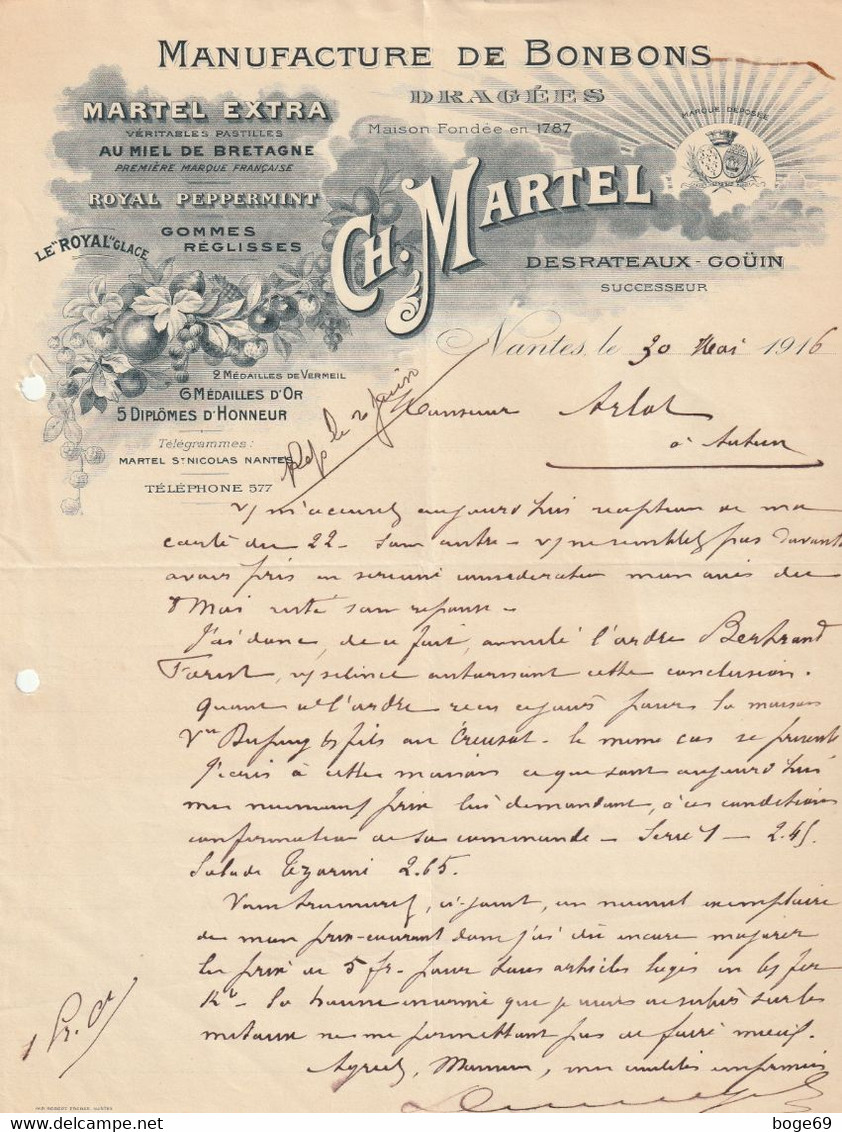 MANUFACTURE DE BONBONS
DRAGÉES
Maison Fondée en 1787
MARTEL EXTRA
VÉRITABLES PASTILLES
AU MIEL DE BRETAGNE
PREMIÈRE MARQUE FRANÇAISE
ROYAL PEPPERMINT
GOMMES
RÉGLISSES
LE "ROYAL" GLACE
MARQUE DÉPOSÉE
CH. MARTEL
DESRATEAUX - GOÜIN
SUCCESSEUR
2 MÉDAILLES DE VERMEIL
6 MÉDAILLES D'OR
5 DIPLÔMES D'HONNEUR
Télégrammes:
MARTEL ST NICOLAS NANTES
TÉLÉPHONE 577
Nantes, le 30 Mai 1916
Rép le 2 Juin
Monsieur Arlot
à Autun
m'accusez aujourd'hui réception de ma
carte du 22 - sans autre - ne semblez pas davantage
avoir pris en sérieuse considération mon avis du
8 Mai resté sans réponse -
J'ai donc, de ce fait, annulé l'ordre Bertrand
Forest, silence autorisant cette conclusion.
Quant à l'ordre reçu ce jour pour la maison
Vve Dupuy & fils au Creusot - le même cas se présente
J'écris à cette maison ce que sont aujourd'hui
mes nouveaux prix lui demandant, à ces conditions
confirmation de sa commande - Serre 1 - 2.45
2.65.
Vous trouverez, ci-joint, un nouvel exemplaire
de mon prix-courant dont j'ai dû encore majorer
les prix de 5 fr. pour tous articles logés en
La hausse énorme que je viens de subir sur les
métaux ne me permettant pas de faire mieux.
Agréez, Monsieur, mes civilités empressées
1 Pr. Ct
boge69